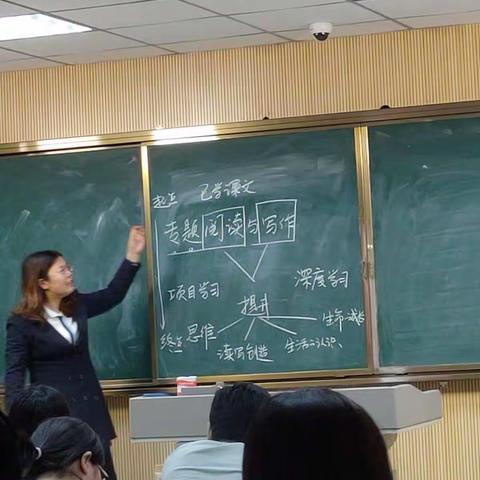 起点 已学课文
专题阅读与写作
项目学习 深度学习
提升
终点 思维 读写创造 生活认识 生命成长